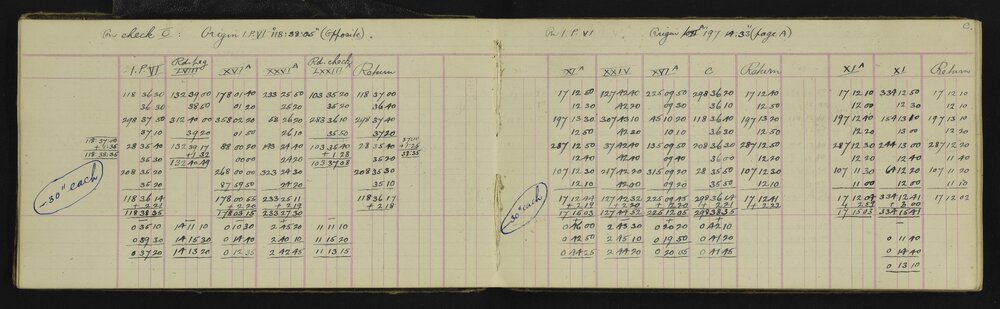 On check C: Origin I.P.VI "118:38:35" (Opposite).
I.P.VI Rd. peg LVIII XVI A XXVI A Rd. check LXXIII Return
118 36 30 132 39 00 178 01 40 233 25 50 103 35 20 118 37 00
36 30 38 50 01 20 25 20 35 20 36 40
298 37 50 312 40 00 358 02 20 283 36 10 298 37 40
37 10 39 20 01 50 26 10 35 50 37 20
28 35 40 88 00 20 103 35 40 28 35 40
35 30 132 40 49 00 00 24 20 103 37 08 35 20
208 35 20 268 00 00 323 24 30 208 35 30
35 20 87 59 50 24 20 35 10
118 36 14 178 00 55 233 25 11 118 36 17
+2.21 +2.20 +2.19 +2.18
118 38 35 178 03 15 233 27 30
0 35 10 14 11 10 0 10 30 2 45 20 11 11 10
0 39 30 14 15 30 0 14 40 2 40 10 11 15 20
0 37 20 14 13 20 0 12 35 2 42 45 11 13 15
118 37 00
+1.35
118 38 35
-30" each
C.
On I.P. VI Origin 197.14.33" (page A)
XI A XXIV XVI A C Return XI A XI Return
17 12 50 127 42 40 225 09 50 298 36 20 17 12 40 17 12 10 334 12 50 17 12 10
12 30 42 20 09 30 36 10 12 50 12 00 12 30 12 10
197 13 30 307 43 10 45 10 20 118 36 40 197 13 20 197 12 40 154 13 10 197 13 10
12 50 42 20 10 10 36 30 12 50 12 20 13 00 12 20
287 12 50 37 42 40 135 09 50 208 36 30 287 12 50 287 12 30 244 13 00 287 12 20
12 40 42 40 09 40 36 00 12 20 12 20 12 40 11 40
107 12 30 217 42 20 315 09 20 28 35 50 107 12 30 107 11 30 64 12 20 107 11 20
12 10 42 00 09 20 35 50 12 10 11 00 12 00 11 10
17 12 44 127 42 32 225 09 45 298 36 14 17 12 41 17 12 04 334 12 41 17 12 02
+2.19 +2.20 +2.20 +2.21 +2.22
17 15 03 127 44 52 226 12 05 298 38 35 17 15 03 334 15 41
0 46 00 2 45 30 0 20 20 0 42 10
0 42 50 2 45 10 0 19 50 0 41 20 0 11 40
0 44 25 2 45 20 0 20 05 0 41 45 0 14 40
0 13 10
-30" each